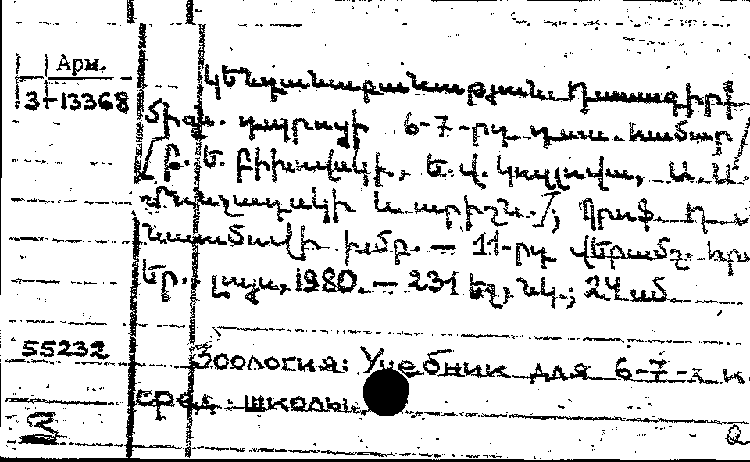 Арм.
3-13368
Կենդանաբանություն: Դասագիրք
միջն. դպրոցի 6-7-րդ դաս. համար
/ Բ. Ե. Բիխովսկի, Ե. Վ. Կոզլովա, Ա. Ա.
Մոնչադսկի և ուրիշն./; Պրոֆ.
խմբ. — 11-րդ վերամշ.
եր.: Լույս, 1980. — 231 էջ, նկ.; 24 սմ.
55232
Зоология: Учебник для 6-7-х к
сред. школы.